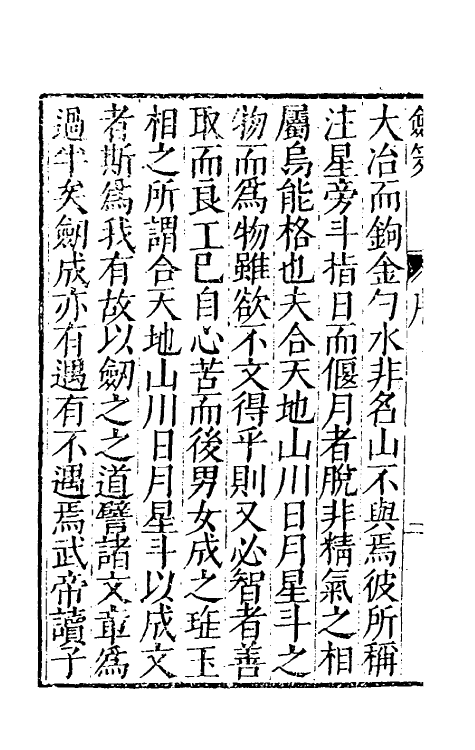 大冶而鉤金勺水非名山不與焉彼所稱
注星旁斗指日而偃月者脫非精氣之相
屬烏能格也夫合天地山川日月星斗之
物而爲物雖欲不文得乎則又必智者善
取而良工巳自心苦而後男女成之琟玉
相之所謂合天地山川日月星斗以成文
者斯爲我有故以劒之之道譬諸文章爲
過半矣劒成亦有遇有不遇焉武帝讀子